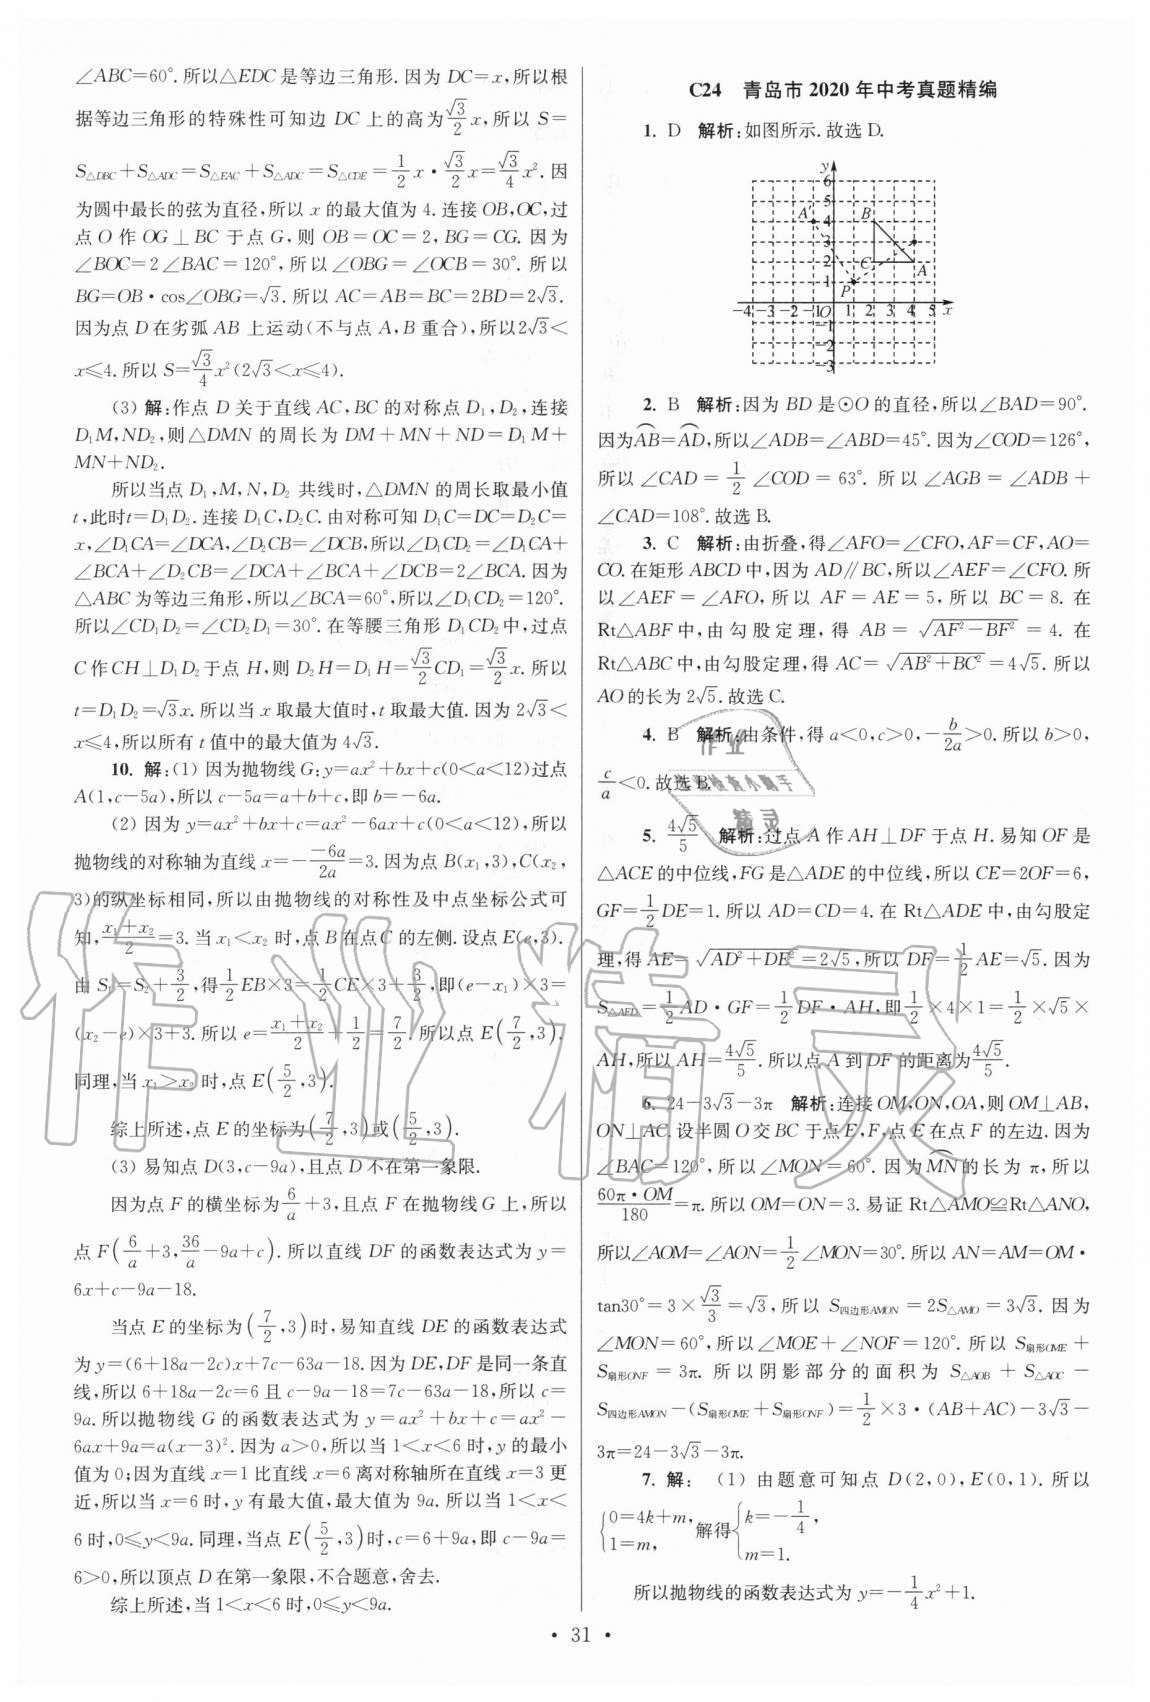 ∠ABC=60°.所以△EDC是等边三角形.因为 DC=x,所以根
据等边三角形的特殊性可知边 DC 上的高为√3/2 x,所以 S=
S△DBC+S△ADC=S△EAC+S△ADC=S△CDE=1/2 x·√3/2 x=√3/4 x².因
为圆中最长的弦为直径,所以 x 的最大值为 4.连接 OB,OC,过
点 O 作 OG⊥BC 于点 G,则 OB=OC=2,BG=CG.因为
∠BOC=2∠BAC=120°,所以∠OBG=∠OCB=30°.所以
BG=OB·cos∠OBG=√3.所以 AC=AB=BC=2BD=2√3.
因为点 D 在劣弧 AB 上运动(不与点 A,B 重合),所以2√3<
x≤4.所以 S=√3/4 x²(2√3<x≤4).
(3) 解:作点 D 关于直线 AC,BC 的对称点 D₁,D₂,连接
D₁M,ND₂,则△DMN 的周长为 DM+MN+ND=D₁M+
MN+ND₂.
所以当点 D₁,M,N,D₂ 共线时,△DMN 的周长取最小值
t,此时t=D₁D₂.连接 D₁C,D₂C.由对称可知 D₁C=DC=D₂C=
x,∠D₁CA=∠DCA,∠D₂CB=∠DCB,所以∠D₁CD₂=∠D₁CA+
∠BCA+∠D₂CB=∠DCA+∠BCA+∠DCB=2∠BCA.因为
△ABC 为等边三角形,所以∠BCA=60°,所以∠D₁CD₂=120°.
所以∠CD₁D₂=∠CD₂D₁=30°.在等腰三角形 D₁CD₂中,过点
C作 CH⊥D₁D₂于点 H,则 D₂H=D₁H=√3/2 CD₁=√3/2 x.所以
t=D₁D₂=√3x.所以当 x 取最大值时,t 取最大值.因为 2√3<
x≤4,所以所有 t 值中的最大值为 4√3.
10. 解:(1) 因为抛物线 G:y=ax²+bx+c(0<a<12)过点
A(1,c-5a),所以 c-5a=a+b+c,即 b=-6a.
(2) 因为 y=ax²+bx+c=ax²-6ax+c(0<a<12),所以
抛物线的对称轴为直线 x=-(-6a)/2a=3.因为点 B(x₁,3),C(x₂,
3)的纵坐标相同,所以由抛物线的对称性及中点坐标公式可
知,(x₁+x₂)/2=3.当 x₁<x₂ 时,点 B 在点 C 的左侧.设点 E(e,3).
由 S₁=S₂+3/2,得1/2 EB×3=1/2 CE×3+3/2,即(e-x₁)×3=
(x₂-e)×3+3.所以 e=(x₁+x₂)/2+1/2=7/2.所以点 E(7/2,3).
同理,当 x₁>x₂时,点 E(5/2,3).
综上所述,点 E 的坐标为(7/2,3)或(5/2,3).
(3) 易知点 D(3,c-9a),且点 D 不在第一象限.
因为点 F 的横坐标为6/a+3,且点 F 在抛物线 G 上,所以
点 F(6/a+3,36/a-9a+c).所以直线 DF 的函数表达式为 y=
6x+c-9a-18.
当点 E 的坐标为(7/2,3)时,易知直线 DE 的函数表达式
为 y=(6+18a-2c)x+7c-63a-18.因为 DE,DF 是同一条直
线,所以 6+18a-2c=6 且 c-9a-18=7c-63a-18,所以 c=
9a.所以抛物线 G 的函数表达式为 y=ax²+bx+c=ax²-
6ax+9a=a(x-3)².因为 a>0,所以当 1<x<6 时,y 的最小
值为 0;因为直线 x=1 比直线 x=6 离对称轴所在直线 x=3 更
近,所以当 x=6 时,y 有最大值,最大值为 9a.所以当 1<x<
6 时,0≤y<9a.同理,当点 E(5/2,3)时,c=6+9a,即 c-9a=
6>0,所以顶点 D 在第一象限,不合题意,舍去.
综上所述,当 1<x<6 时,0≤y<9a.
C24 青岛市 2020 年中考真题精编
1. D 解析:如图所示.故选 D.
y
6
5
A′ 4 B
3
2 C A
1 P
-4 -3 -2 -1 O 1 2 3 4 5 x
-1
-2
-3
2. B 解析:因为 BD 是⊙O 的直径,所以∠BAD=90°.
因为⌒AB=⌒AD,所以∠ADB=∠ABD=45°.因为∠COD=126°,
所以∠CAD=1/2∠COD=63°.所以∠AGB=∠ADB+
∠CAD=108°.故选 B.
3. C 解析:由折叠,得∠AFO=∠CFO,AF=CF,AO=
CO.在矩形 ABCD 中,因为 AD∥BC,所以∠AEF=∠CFO.所
以∠AEF=∠AFO,所以 AF=AE=5,所以 BC=8.在
Rt△ABF 中,由勾股定理,得 AB=√(AF²-BF²)=4.在
Rt△ABC 中,由勾股定理,得 AC=√(AB²+BC²)=4√5.所以
AO 的长为 2√5.故选 C.
4. B 解析:由条件,得 a<0,c>0,-b/2a>0.所以 b>0,
c/a<0.故选 B.
5. 4√5/5 解析:过点 A 作 AH⊥DF 于点 H.易知 OF 是
△ACE 的中位线,FG 是△ADE 的中位线,所以 CE=2OF=6,
GF=1/2 DE=1.所以 AD=CD=4.在 Rt△ADE 中,由勾股定
理,得 AE=√(AD²+DE²)=2√5,所以 DF=1/2 AE=√5.因为
S△AFD=1/2 AD·GF=1/2 DF·AH,即1/2×4×1=1/2×√5×
AH,所以 AH=4√5/5.所以点 A 到 DF 的距离为4√5/5.
6. 24-3√3-3π 解析:连接 OM,ON,OA,则 OM⊥AB,
ON⊥AC.设半圆 O 交 BC 于点 E,F,点 E 在点 F 的左边.因为
∠BAC=120°,所以∠MON=60°.因为⌒MN的长为 π,所以
60π·OM/180=π.所以 OM=ON=3.易证 Rt△AMO≌Rt△ANO,
所以∠AOM=∠AON=1/2∠MON=30°.所以 AN=AM=OM·
tan30°=3×√3/3=√3,所以 S四边形AMON=2S△AMO=3√3.因为
∠MON=60°,所以∠MOE+∠NOF=120°.所以 S扇形OME+
S扇形ONF=3π.所以阴影部分的面积为 S△AOB+S△AOC-
S四边形AMON-(S扇形OME+S扇形ONF)=1/2×3·(AB+AC)-3√3-
3π=24-3√3-3π.
7. 解:(1) 由题意可知点 D(2,0),E(0,1).所以
{0=4k+m, 1=m, 解得{k=-1/4, m=1.
所以抛物线的函数表达式为 y=-1/4 x²+1.
· 31 ·
作业
精灵
作业精灵